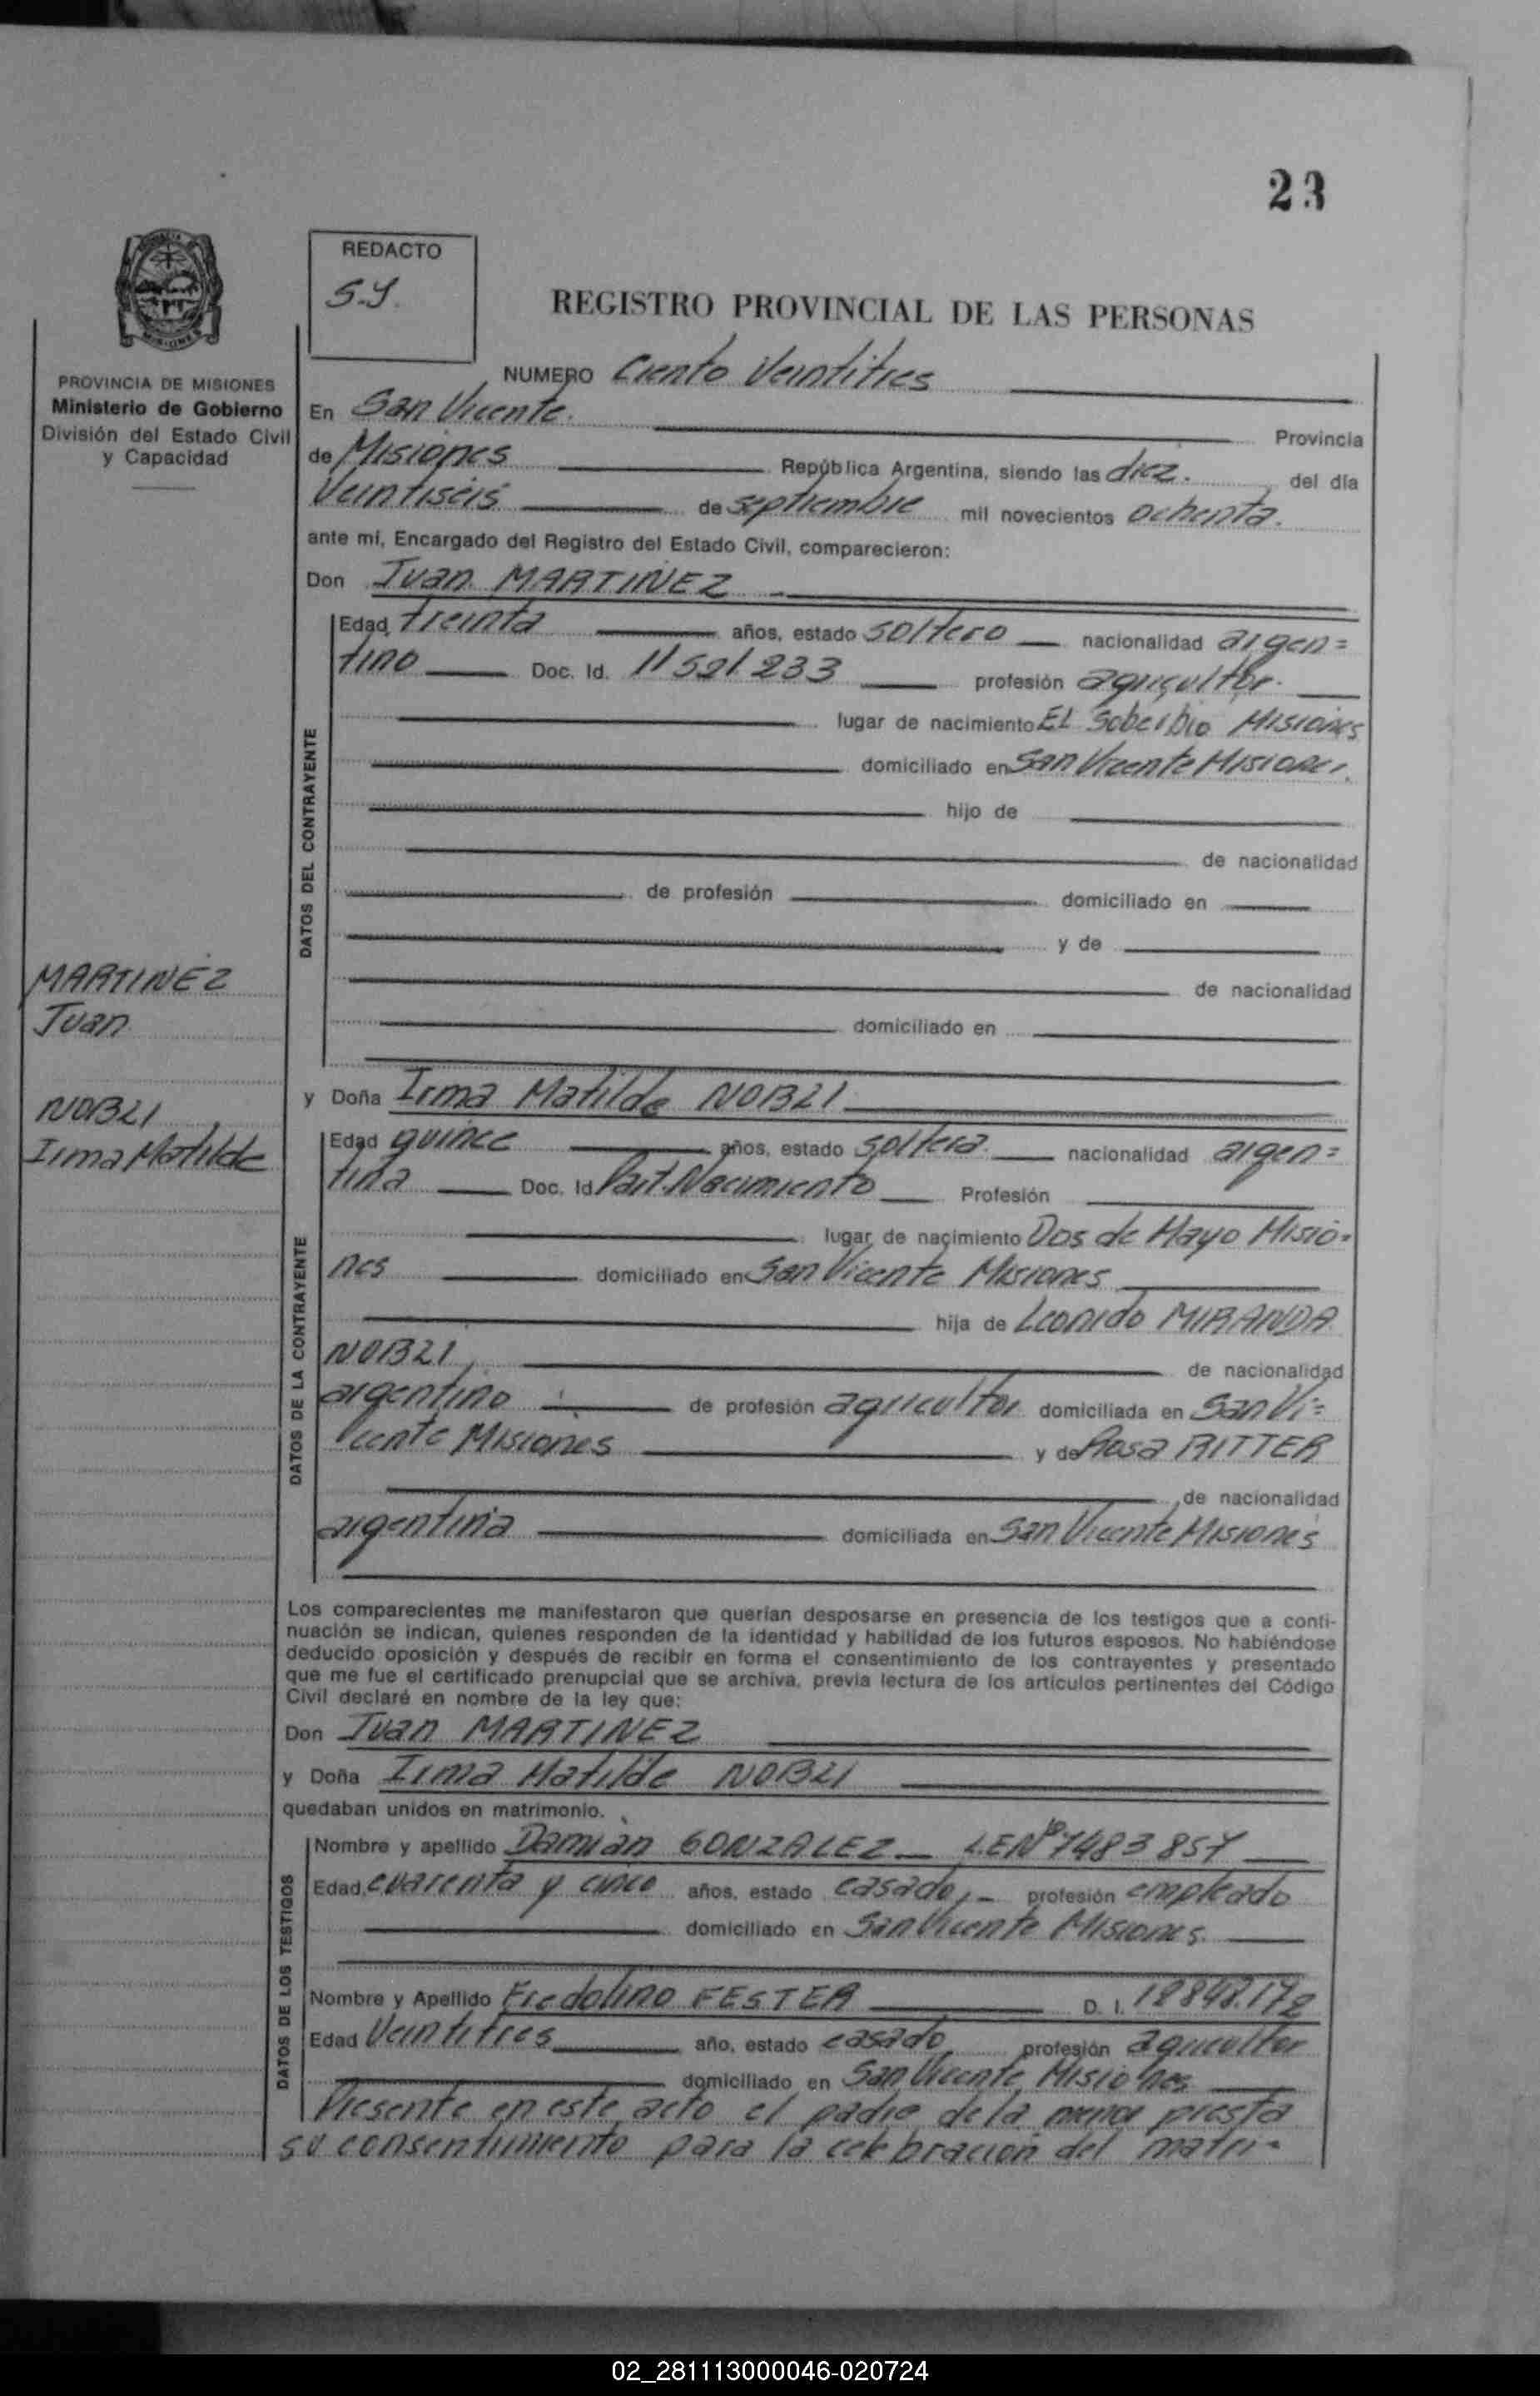 23
REDACTO
S.Y.
REGISTRO PROVINCIAL DE LAS PERSONAS
PROVINCIA DE MISIONES
Ministerio de Gobierno
División del Estado Civil
y Capacidad
NUMERO Ciento Veintitres
En San Vicente. Provincia
de Misiones República Argentina, siendo las diez. del día
Veintiseis de septiembre mil novecientos ochenta.
ante mí, Encargado del Registro del Estado Civil, comparecieron:
Don Juan MARTINEZ
DATOS DEL CONTRAYENTE
Edad treinta años, estado soltero nacionalidad argen=
tino Doc. Id. 11 521 233 profesión agricultor.
lugar de nacimiento El Soberbio Misiones
domiciliado en San Vicente Misiones.
hijo de
de nacionalidad
de profesión domiciliado en
y de
de nacionalidad
domiciliado en
MARTINEZ
Juan
NOBLI
Irma Matilde
y Doña Irma Matilde NOBLI
DATOS DE LA CONTRAYENTE
Edad quince años, estado soltera. nacionalidad argen=
tina Doc. Id. Part. Nacimiento Profesión
lugar de nacimiento Dos de Mayo Misio-
nes domiciliado en San Vicente Misiones
hija de Leonido MIRANDA
NOBLI, de nacionalidad
argentino de profesión agricultor domiciliada en San Vi=
cente Misiones y de Rosa RITTER
, de nacionalidad
argentina domiciliada en San Vicente Misiones
Los comparecientes me manifestaron que querían desposarse en presencia de los testigos que a conti-
nuación se indican, quienes responden de la identidad y habilidad de los futuros esposos. No habiéndose
deducido oposición y después de recibir en forma el consentimiento de los contrayentes y presentado
que me fue el certificado prenupcial que se archiva, previa lectura de los artículos pertinentes del Código
Civil declaré en nombre de la ley que:
Don Juan MARTINEZ
y Doña Irma Matilde NOBLI
quedaban unidos en matrimonio.
DATOS DE LOS TESTIGOS
Nombre y apellido Damián GONZALEZ L.E Nº 7483 857
Edad cuarenta y cinco años, estado casado, profesión empleado
domiciliado en San Vicente Misiones.
Nombre y Apellido Fredolino FESTER D. I. 12842.172
Edad Veintitres año, estado casado profesión agricultor
domiciliado en San Vicente Misiones
Presente en este acto el padre de la menor presta
su consentimiento para la celebración del matri-
02_281113000046-020724